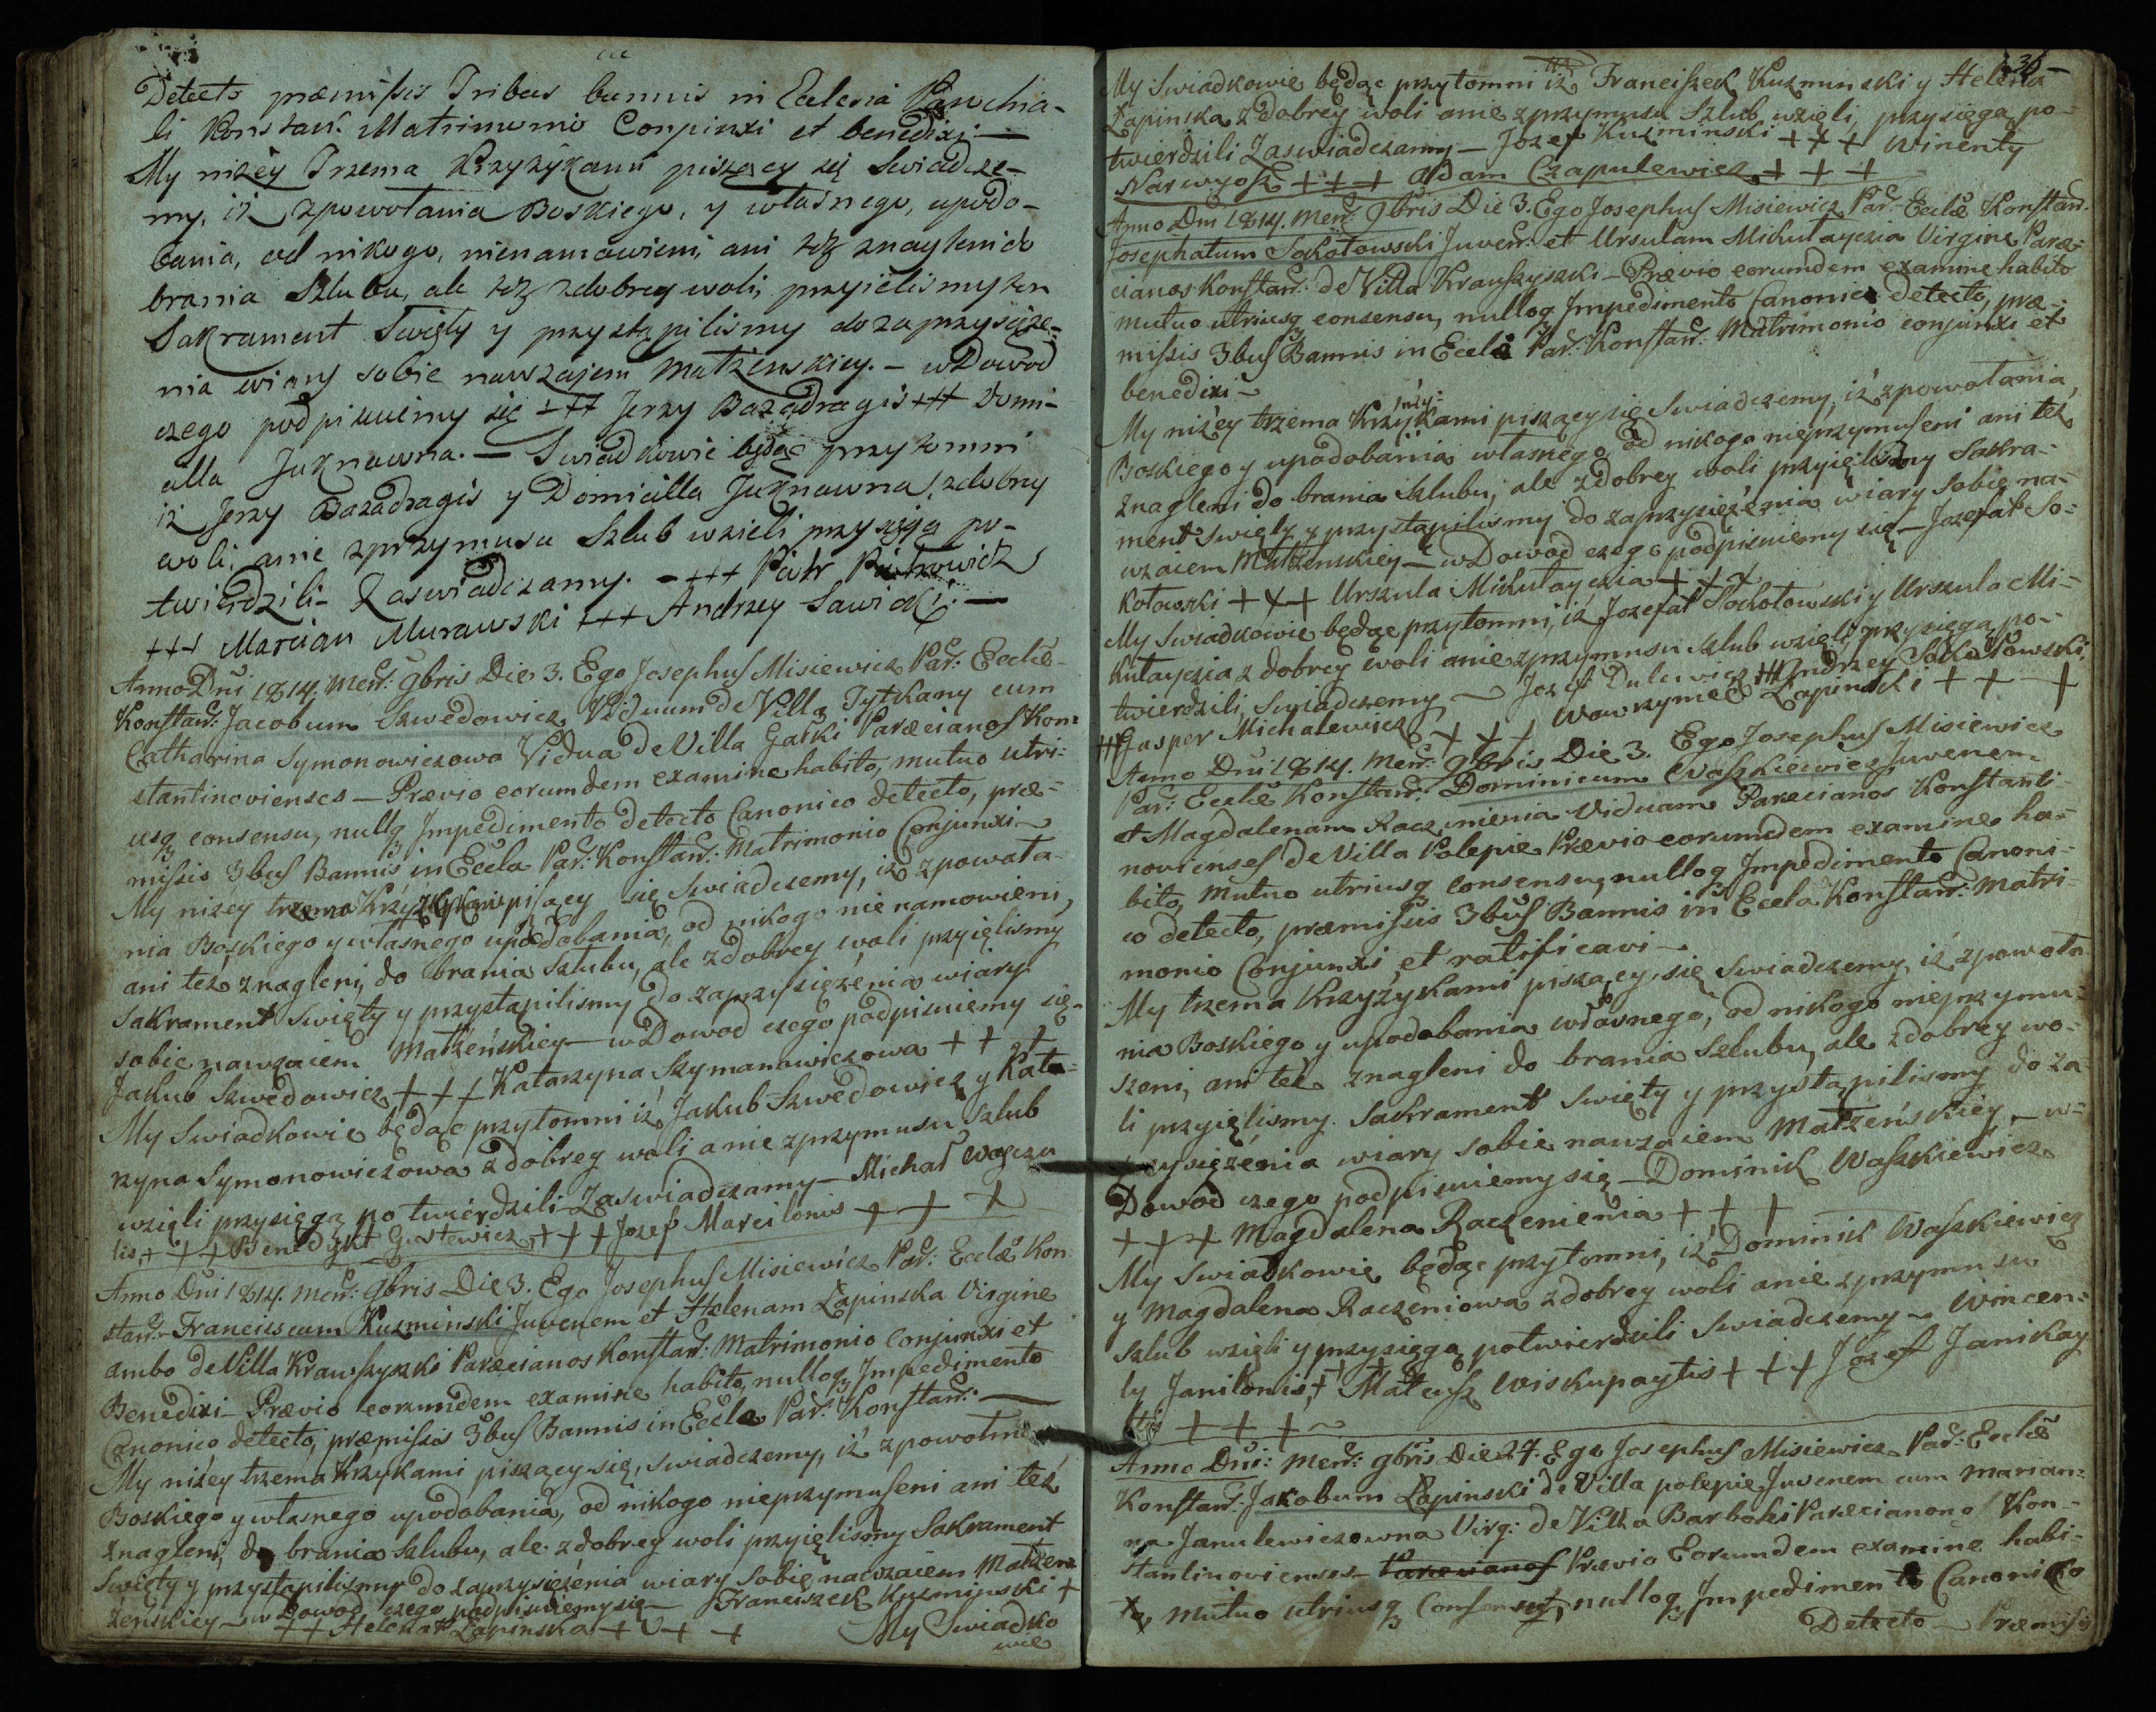 Detecto præmissis Tribus bannis in Ecclesia Parochia-
li Konstan: Matrimonio Conjunxi et benedixi. —
My niżey Trzema Krzyżykami piszący się Swiadcze-
my, iż zpowołania Boskiego, y własnego, upodo-
bania, od nikogo, nienamowieni, ani też znagleni do
brania Szlubu, ale też zdobrey woli, przyieliśmy ten
Sakrament Swięty y przystąpiliśmy do zaprzysięże-
nia wiary sobie nawzajem Małżenskiey. — wDowod
czego podpisuiemy się +++ Jerzy Bazadragis +++ Domi-
cilla Juknowna. — Swiadkowie będąc przytomni
iż Jerzy Bazadragis y Domicilla Juknowna, zdobrey
woli, anie zprzymusu Szlub wzieli przysięgą po-
twierdzili — Zaswiadczamy. — +++ Piotr Piotrowicz
+++ Marcian Murawski +++ Andrzey Sawicki. —
Anno Dni 1814. Men: 9bris Die 3. Ego Josephus Misiewicz Par: Ecclæ
Konstan: Jacobum Szwedowicz Viduum de Villa Tytkany cum
Catharina Symonowiczowa Vidua de Villa Gatki Paræcianos Kon-
stantinovienses — Prævio eorumdem examine habito, mutuo utri-
usq consensu, nullq Impedimento detecto Canonico detecto, præ-
missis 3bus Bannis in Eccla Par: Konstan: Matrimonio Conjunxi —
My niżey trzema Krzyżykami pisący się Swiadczemy, iż zpowoła-
nia Boskiego y własnego upodobania, od nikogo nie namowieni,
ani też znagleni, do brania Szlubu, ale zdobrey woli przyięlismy
Sakrament Swięty y przystąpilismy do zaprzysiężenia wiary
sobie nawzaiem Małżeńskiey — wDowod czego podpisuiemy się —
Jakub Szwedowicz +++ Katarzyna Szymanowiczowa +++
My Swiadkowie będąc przytomni iż Jakub Szwedowicz y Kata-
rzyna Symonowiczowa zdobrey woli a nie zprzymusu Szlub
wzięli przysięgą potwierdzili Zaswiadczamy — Michał
lis +++ Benedykt +++ Jozef Marcilonis +++
Anno Dni 1814. Men: 9bris Die 3. Ego Josephus Misiewicz Par: Ecclæ Kon-
stan: — Franciscum Kuzminski Juvenem et Helenam Łapinska Virgine
ambo de Villa Krauszyszki Paræcianos Konstan: Matrimonio Conjunxi et
Benedixi — Prævio eorumdem examine habito, nulloq Impedimento
Canonico detecto, præmissis 3bus Bannis in Eccla Par: Konstan: —
My niżey trzema Krzykami piszący się, swiadczemy, iż zpowołnia
Boskiego y własnego upodobania, od nikogo nieprzymuseni ani też
znagleni, do brania Szlubu, ale zdobrey woli przyięlismy Sakrament
Swięty y przystąpilismy do zaprzysiężenia wiary sobie nawzaiem Małżen-
żenskiey — w Dowod czego podpisuiemy się — Franciszek Kuzminski +
++ Helena Łapinska +++ My Swiadko
wie
36
My Swiadkowie będąc przytomni iż Franciszek Kuzminski y Helena
Łapinska zdobrey woli anie zprzymusu Szlub wzięli przysięgą po-
twierdzili Zaswiadczamy — Jozef Kuzminski +++ Winenty
Narwoysz +++ Adam Czapulewicz +++
Anno Dni 1814. Men: 9bris Die 3. Ego Josephus Misiewicz Par: Ecclæ Konstan:
Josephatum Sokołowski Juven: et Ursulam Mikułayczia Virgine Paræ-
cianos Konstan: de Villa Krauszyszki — Prævio eorumdem examine habito
mutuo utriusq consensu, nulloq Impedimento Canonico detecto, præ-
missis 3bus Bannis in Eccla Par: Konstan: Matrimonio conjunxi et
benedixi —
My niżey trzema Krzykami piszący się Swiadczemy, iż zpowołania
Boskiego y upodobania własnego od nikogo nieprzymuseni ani też
znagleni do brania Szlubu, ale zdobrey woli, przyięlismy Sakra-
ment Swięty y przystąpilismy do zaprzysiężenia wiary sobie na-
wzaiem Małżenskiey — wDowod czego podpisuiemy się — Jozefat So-
kołowski +++ Urszula Mikułayczia +++
My Swiadkowie będąc przytomni, iż Jozefat Sokołowski y Urszula Mi-
kułayczia zdobrey woli anie zprzymusu Szlub wzięli przysięgą po-
twierdzili, Swiadczemy — Jozef Dulewicz +++ Andrzey Sokołowski
+++ Gasper Michalewicz +++ Wawrzyniec Łapinski +++
Anno Dni 1814. Men: 9bris Die 3. Ego Josephus Misiewicz
Par: Ecclæ Konstan: Dominicum Waszkiewicz Juvenem
et Magdalenam Raczenienia Viduam Paræcianos Konstanti-
novienses de Villa Polepie Prævio eorumdem examine ha-
bito, Mutuo utriusq consensu, nulloq Impedimento Canoni-
co detecto, præmissis 3bus Bannis in Eccla Konstan: Matri-
monio Conjunxi et ratificavi —
My trzema Krzyżykami piszący się Swiadczemy, iż zpowoła-
nia Boskiego y upodobania własnego, od nikogo nieprzymu-
szeni, ani też znagleni do brania Szlubu, ale zdobrey wo-
li przyięlismy Sakrament Swięty y przystąpilismy do za-
przysiężenia wiary sobie nawzaiem Małżeńskiey — w-
Dowod czego podpisuiemy się — Dominik Waszkiewicz
+++ Magdalena Raczenienia +++
My Swiadkowie będąc przytomni, iż Dominik Waszkiewicz
y Magdalena Raczeniowa zdobrey woli anie zprzymusu
Szlub wzięli y przysięgą potwierdzili Swiadczemy — Wincen-
ty Janilonis + Mateusz Wiskupaytis +++ Jozef Janikay
tis +++ —
Anno Dni: Men: 9bris Die 27. Ego Josephus Misiewicz Par: Ecclæ
Konstan: Jakobum Łapinski de Villa polepie Juvenem cum Marian-
na Janulewiczowna Virg: de Villa Barboki Paræcianono Kon-
stantinovienses — Paræcianos Prævio Eorumdem examine habi-
to, mutuo utriusq Consensu, nulloq Impedimento Canonico
Detecto — Præmissis